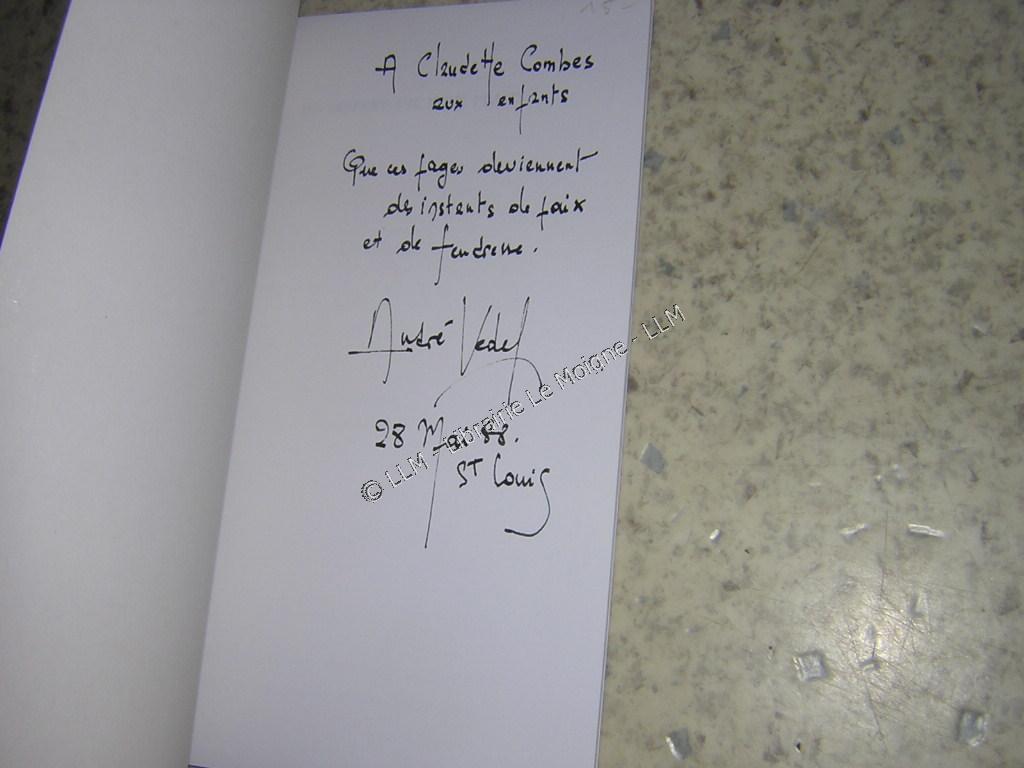 15-
A Claudette Combes
aux enfants
Que ces pages deviennent
des instants de paix
et de tendresse.
André Vedel
28 Mai 88.
St Louis
© LLM - Librairie Le Moigne - LLM